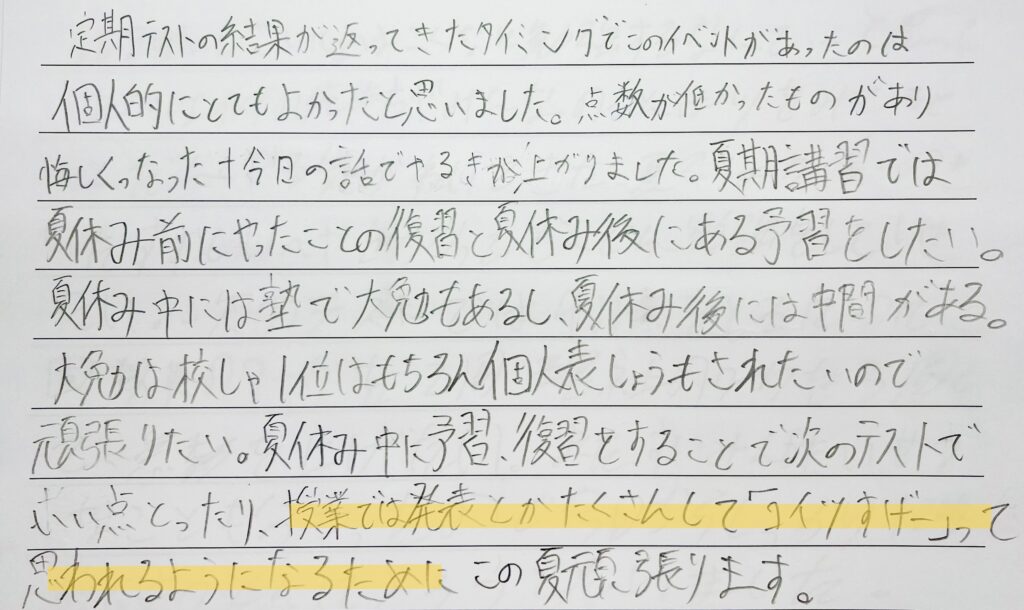 定期テストの結果が返ってきたタイミングでこのイベントがあったのは
個人的にとてもよかったと思いました。点数が低かったものがあり
悔しくなった十今日の話でやるきが上がりました。夏期講習では
夏休み前にやったことの復習と夏休み後にある予習をしたい。
夏休み中には塾で大勉もあるし、夏休み後には中間がある。
大勉は校しゃ1位はもちろん個人表しょうもされたいので
頑張りたい。夏休み中に予習、復習をすることで次のテストで
いい点とったり、授業では発表とかたくさんして「コイツすげー」って
思われるようになるためにこの夏頑張ります。